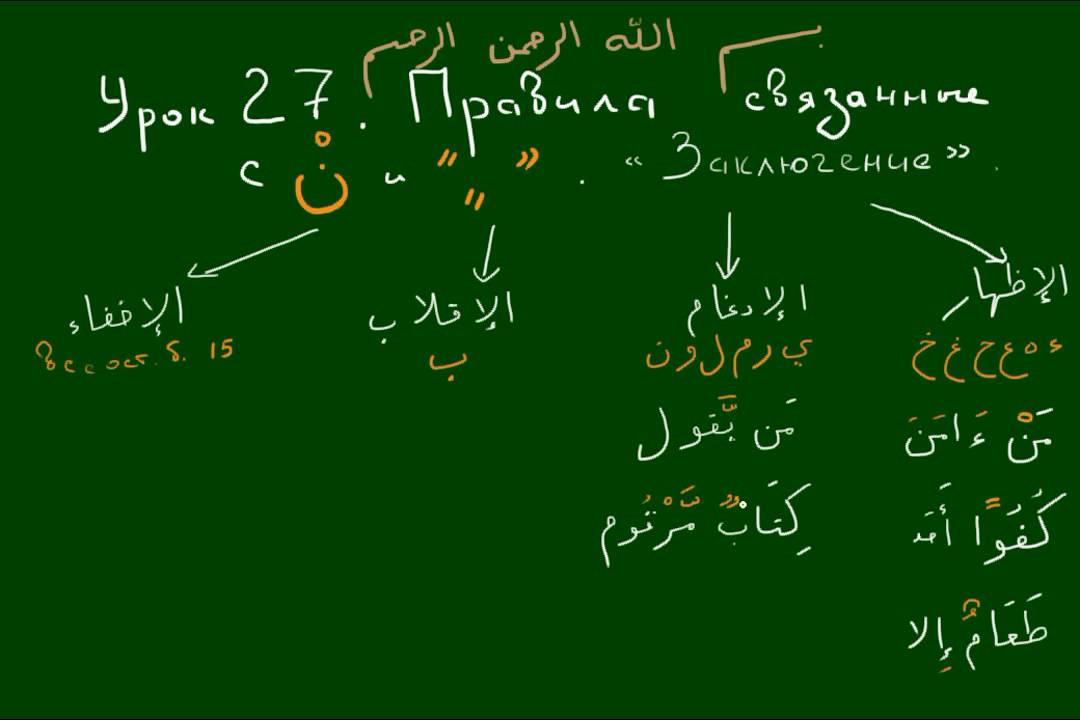 بسم الله الرحمن الرحيم
Урок 27. Правила связанные
с نْ и " " " . "Заключение".
الإظهار
ء ه ع ح غ خ
مَنْ ءَامَنَ
كُفُوًا أَحَد
طَعَامٌ إِلا
الإدغام
ي ر م ل و ن
مَن يَّقول
كِتَابٌ مَّرْقُوم
الإقلاب
ب
الإخفاء
все ост. б. 15